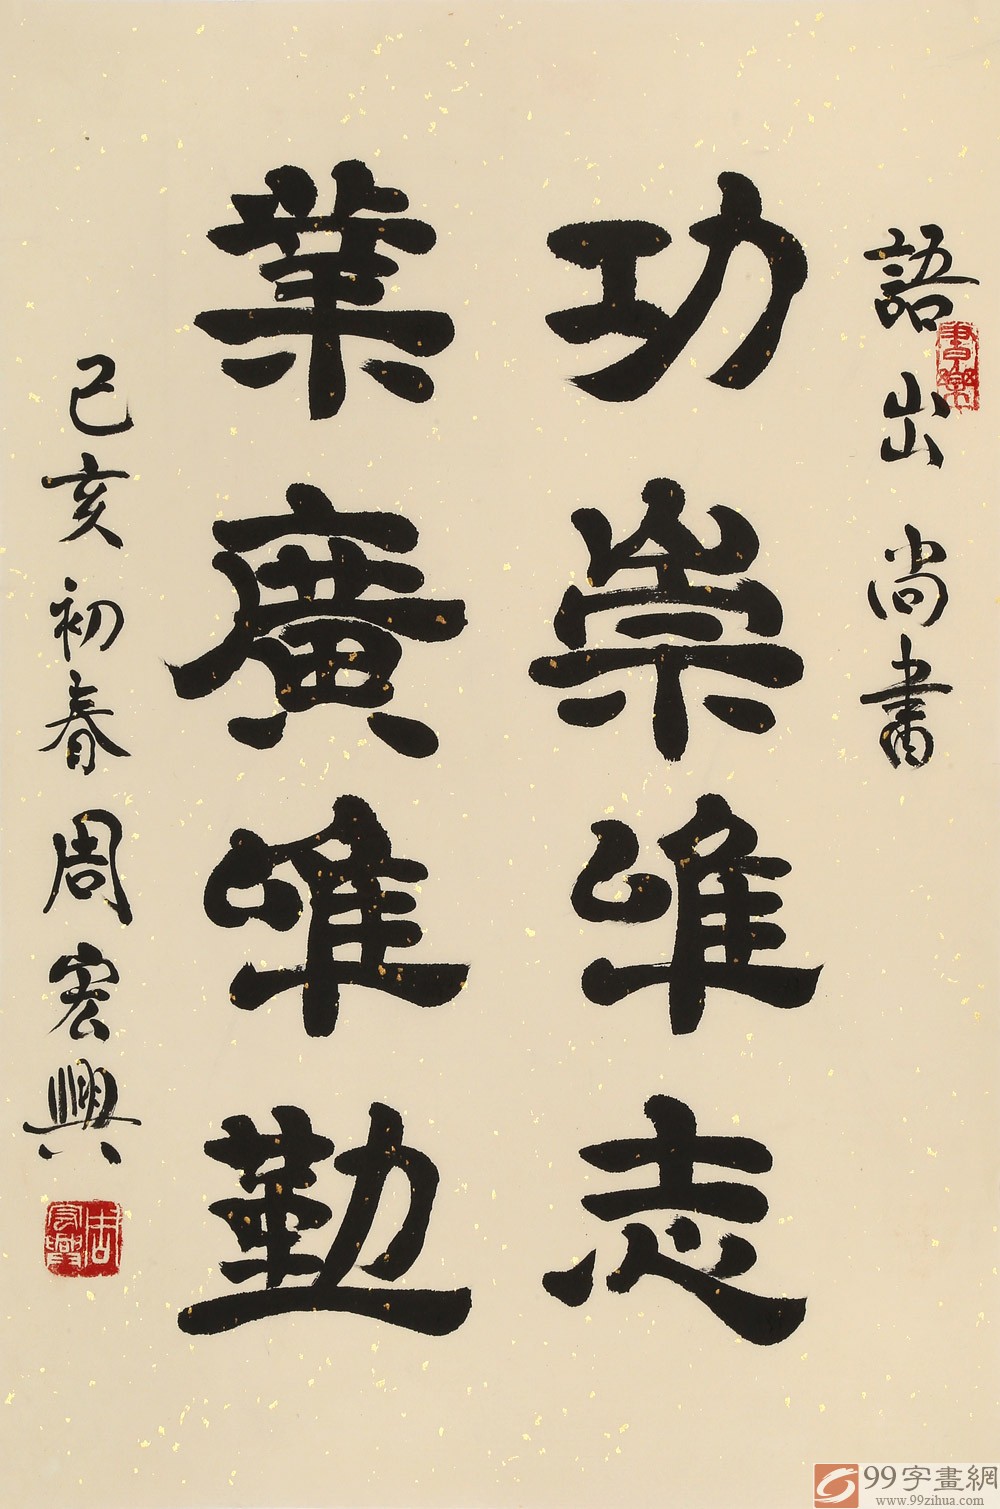 語出尚書
功崇唯志
業廣唯勤
己亥初春周宏興
書樂
周宏興
99字畫網
www.99zihua.com